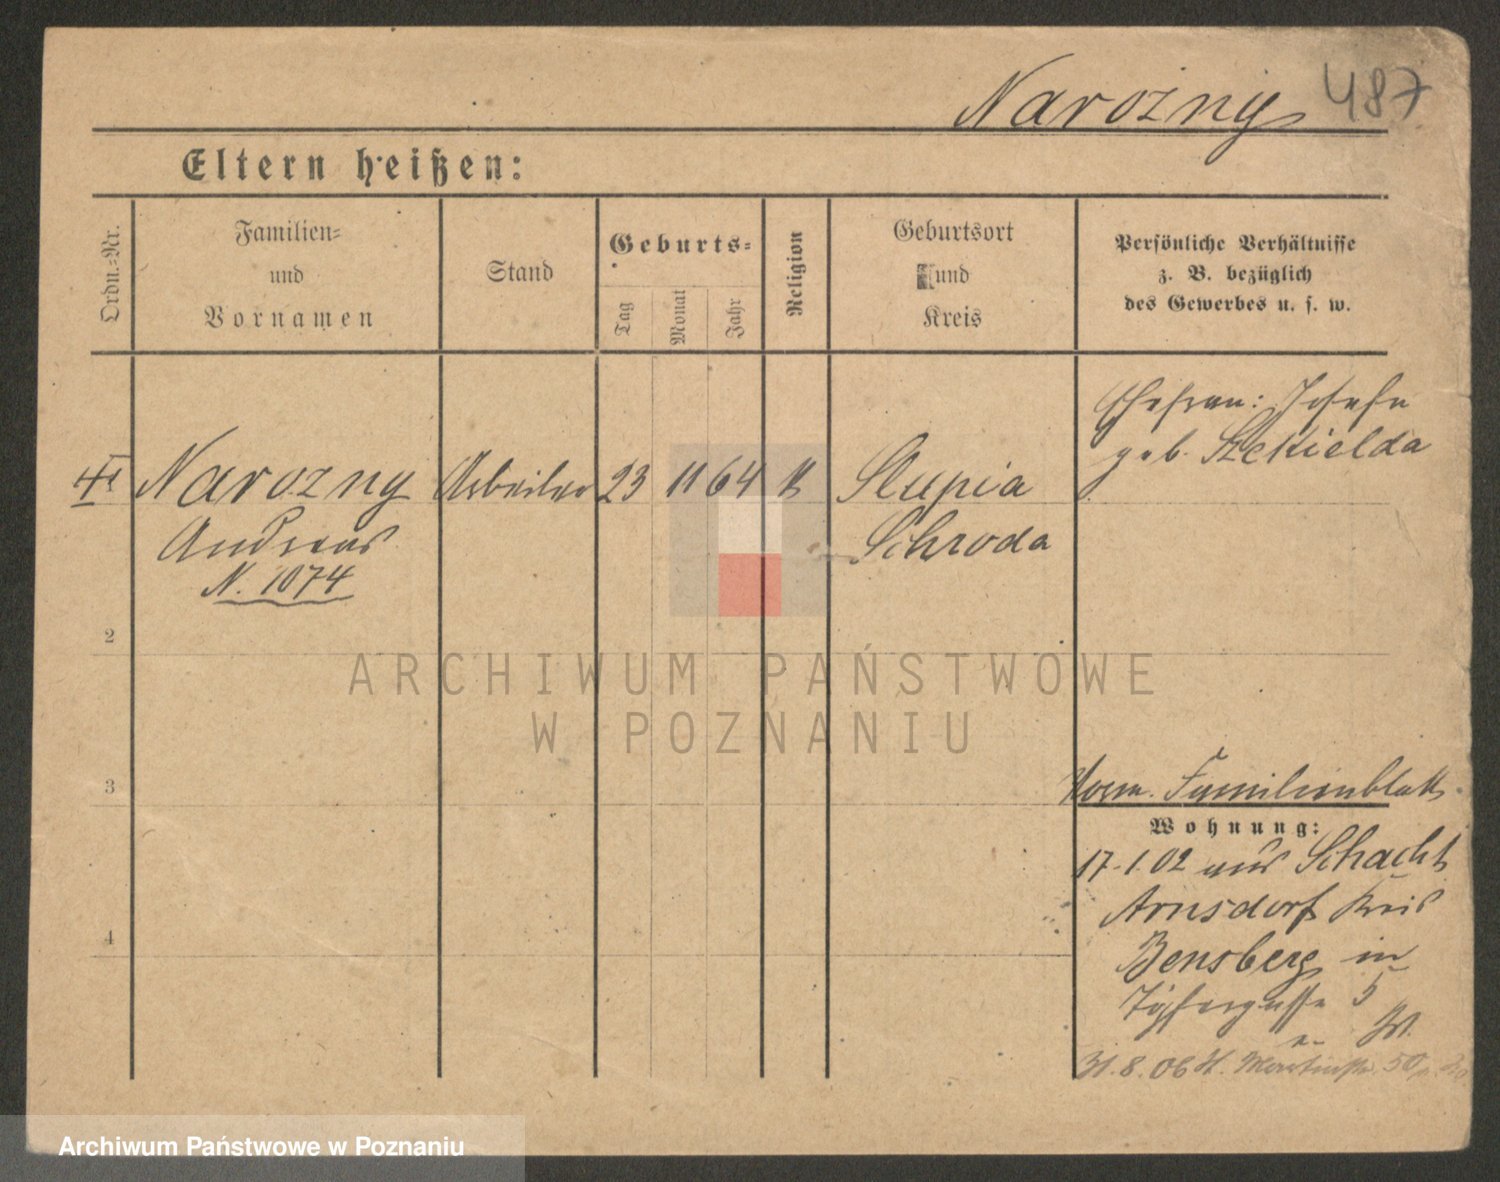 Narozny 487
Eltern heißen:
Ordn.-Nr.
Familien-
und
Vornamen
Stand
Geburts-
Tag
Monat
Jahr
Religion
Geburtsort
und
Kreis
Persönliche Verhältnisse
z. B. bezüglich
des Gewerbes u. s. w.
Ehefrau: Josefa
geb. Szekielda
Narozny Arbeiter 23 11 64 K Slupia
Andreas Schroda
N. 1074
2
3
4
ARCHIWUM PAŃSTWOWE
W POZNANIU
Familienblatt
Wohnung:
17.1.02 aus Schacht
Arnsdorf Kreis
Bensberg in
Töpfergasse 5
31.8.06 50
Archiwum Państwowe w Poznaniu